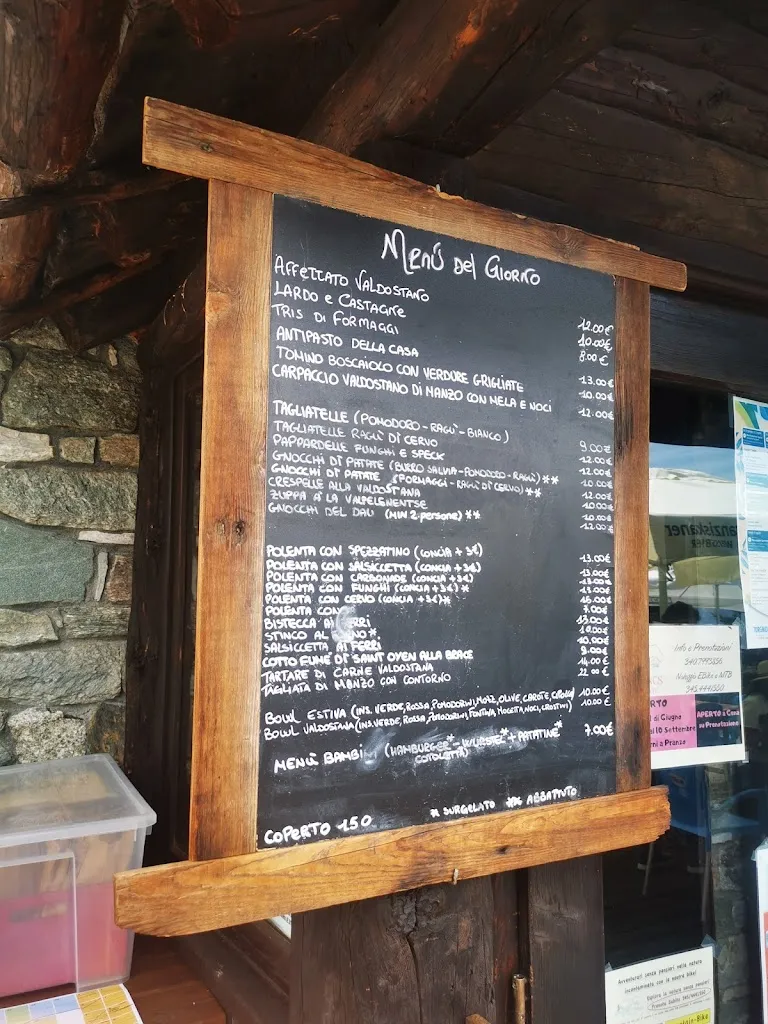 Menù del Giorno
AFFETTATO VALDOSTANO 12.00€
LARDO e CASTAGNE 10.00€
TRIS DI FORMAGGI 8.00€
ANTIPASTO DELLA CASA 13.00€
TOMINO BOSCAIOLO CON VERDURE GRIGLIATE 10.00€
CARPACCIO VALDOSTANO DI MANZO CON MELA E NOCI 12.00€
TAGLIATELLE (POMODORO - RAGÙ - BIANCO) 9.00€
TAGLIATELLE RAGÙ DI CERVO 12.00€
PAPPARDELLE FUNGHI E SPECK 12.00€
GNOCCHI DI PATATE (BURRO SALVIA - POMODORO - RAGÙ) ** 10.00€
GNOCCHI DI PATATE (FORMAGGI - RAGÙ DI CERVO) ** 12.00€
CRESPELLE ALLA VALDOSTANA 10.00€
ZUPPA A LA VALPELENENTSE 10.00€
GNOCCHI DEL DAU (MIN 2 persone) ** 12.00€
POLENTA CON SPEZZATINO (CONCIA + 3€) 13.00€
POLENTA CON SALSICCETTA (CONCIA + 3€) 13.00€
POLENTA CON CARBONADE (CONCIA + 3€) 13.00€
POLENTA CON FUNGHI (CONCIA + 3€) * 13.00€
POLENTA CON CERVO (CONCIA + 3€) * 15.00€
POLENTA CON 7.00€
BISTECCA AI FERRI 13.00€
STINCO AL FORNO *
SALSICCETTA AI FERRI
COTTO FUMÉ DI SAINT OYEN ALLA BRACE 9.00€
TARTARE DI CARNE VALDOSTANA 14.00€
TAGLIATA DI MANZO CON CONTORNO 22.00€
BOWL ESTIVA (INS. VERDE, ROSSA, POMODORINI, MOZZ, OLIVE, CAROTE, CIPOLLA) 10.00€
BOWL VALDOSTANA (INS. VERDE, ROSSA, POMODORINI, FONTINA, MOCETTA, NOCI, CROSTINI) 10.00€
MENÙ BAMBINI (HAMBURGER* - WURSTEL* + PATATINE* 7.00€
COTOLETTA)
* SURGELATO ** ABBATTUTO
COPERTO 1.50
Info e Prenotazioni
Noleggio EBike e MTB
di Giugno
10 Settembre
a Pranzo
APERTO a Cena
su Prenotazione
Avventurati senza pensieri nella natura
incontaminata con le nostre bike!